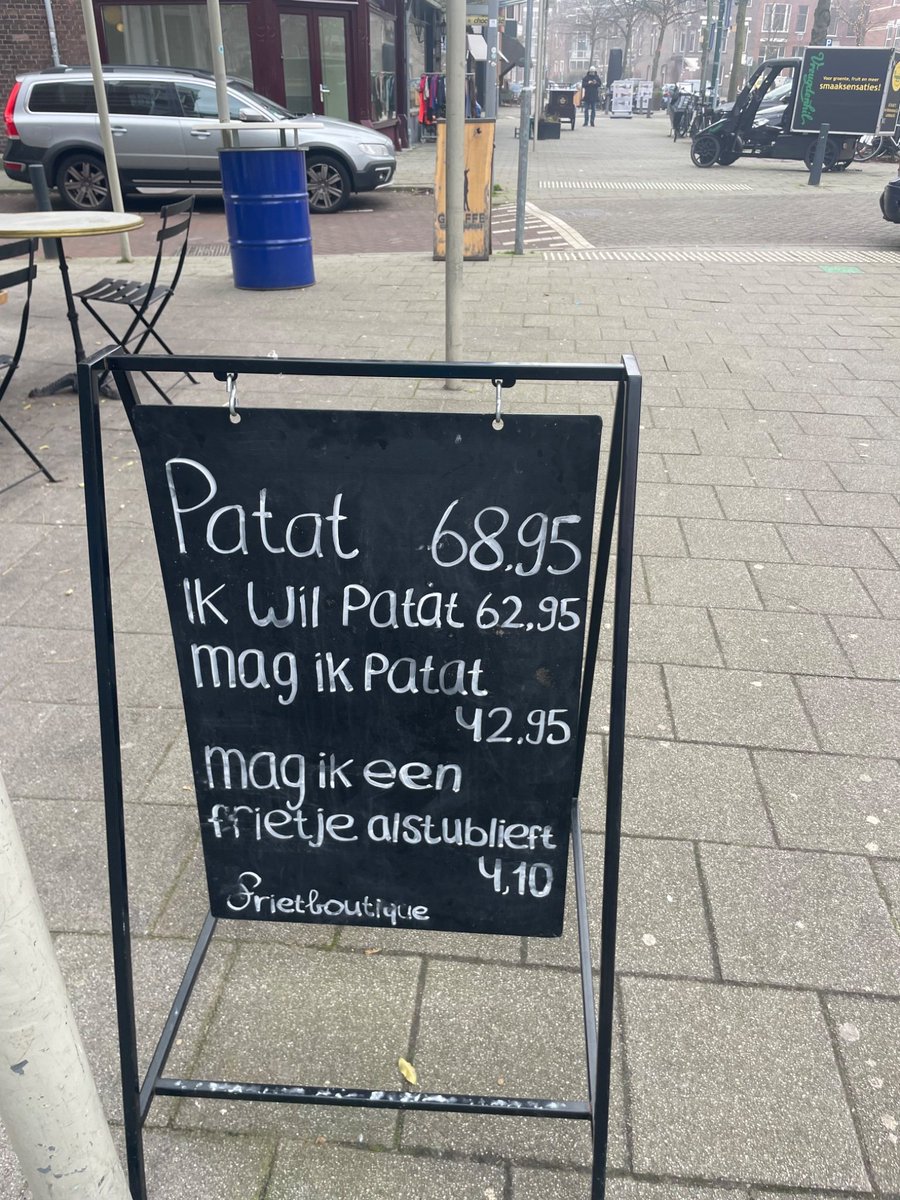 Patat 68.95
Ik Wil Patat 62.95
mag ik Patat
42.95
mag ik een
frietje alstublieft
4,10
Frietboutique
Voor groente, fruit en meer
smaaksensaties!